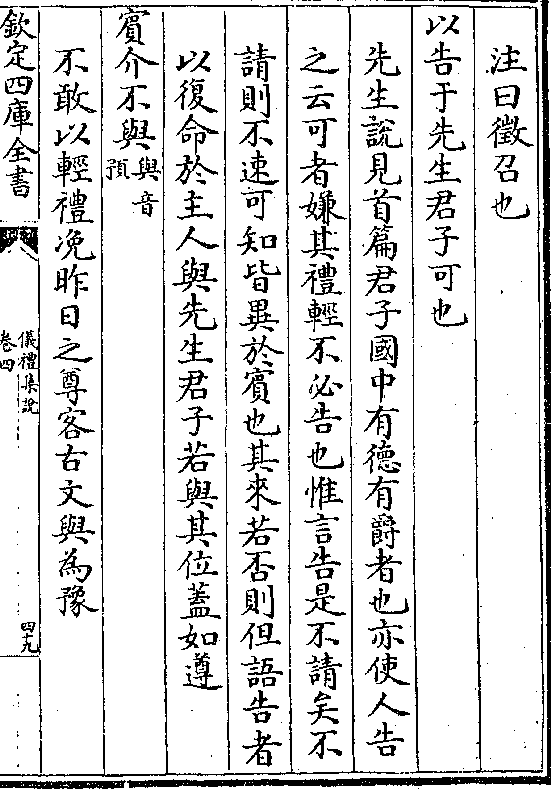 注曰徵召也
以告于先生君子可也
先生說見首篇君子國中有德有爵者也亦使人告
之云可者嫌其禮輕不必告也惟言告是不請矣不
請則不速可知皆異於賓也其來若否則但語告者
以復命於主人與先生君子若與其位蓋如遵
賓介不與與音預
不敢以輕禮凂昨日之尊客古文與為豫
欽定四庫全書
儀禮集說
卷四
四九